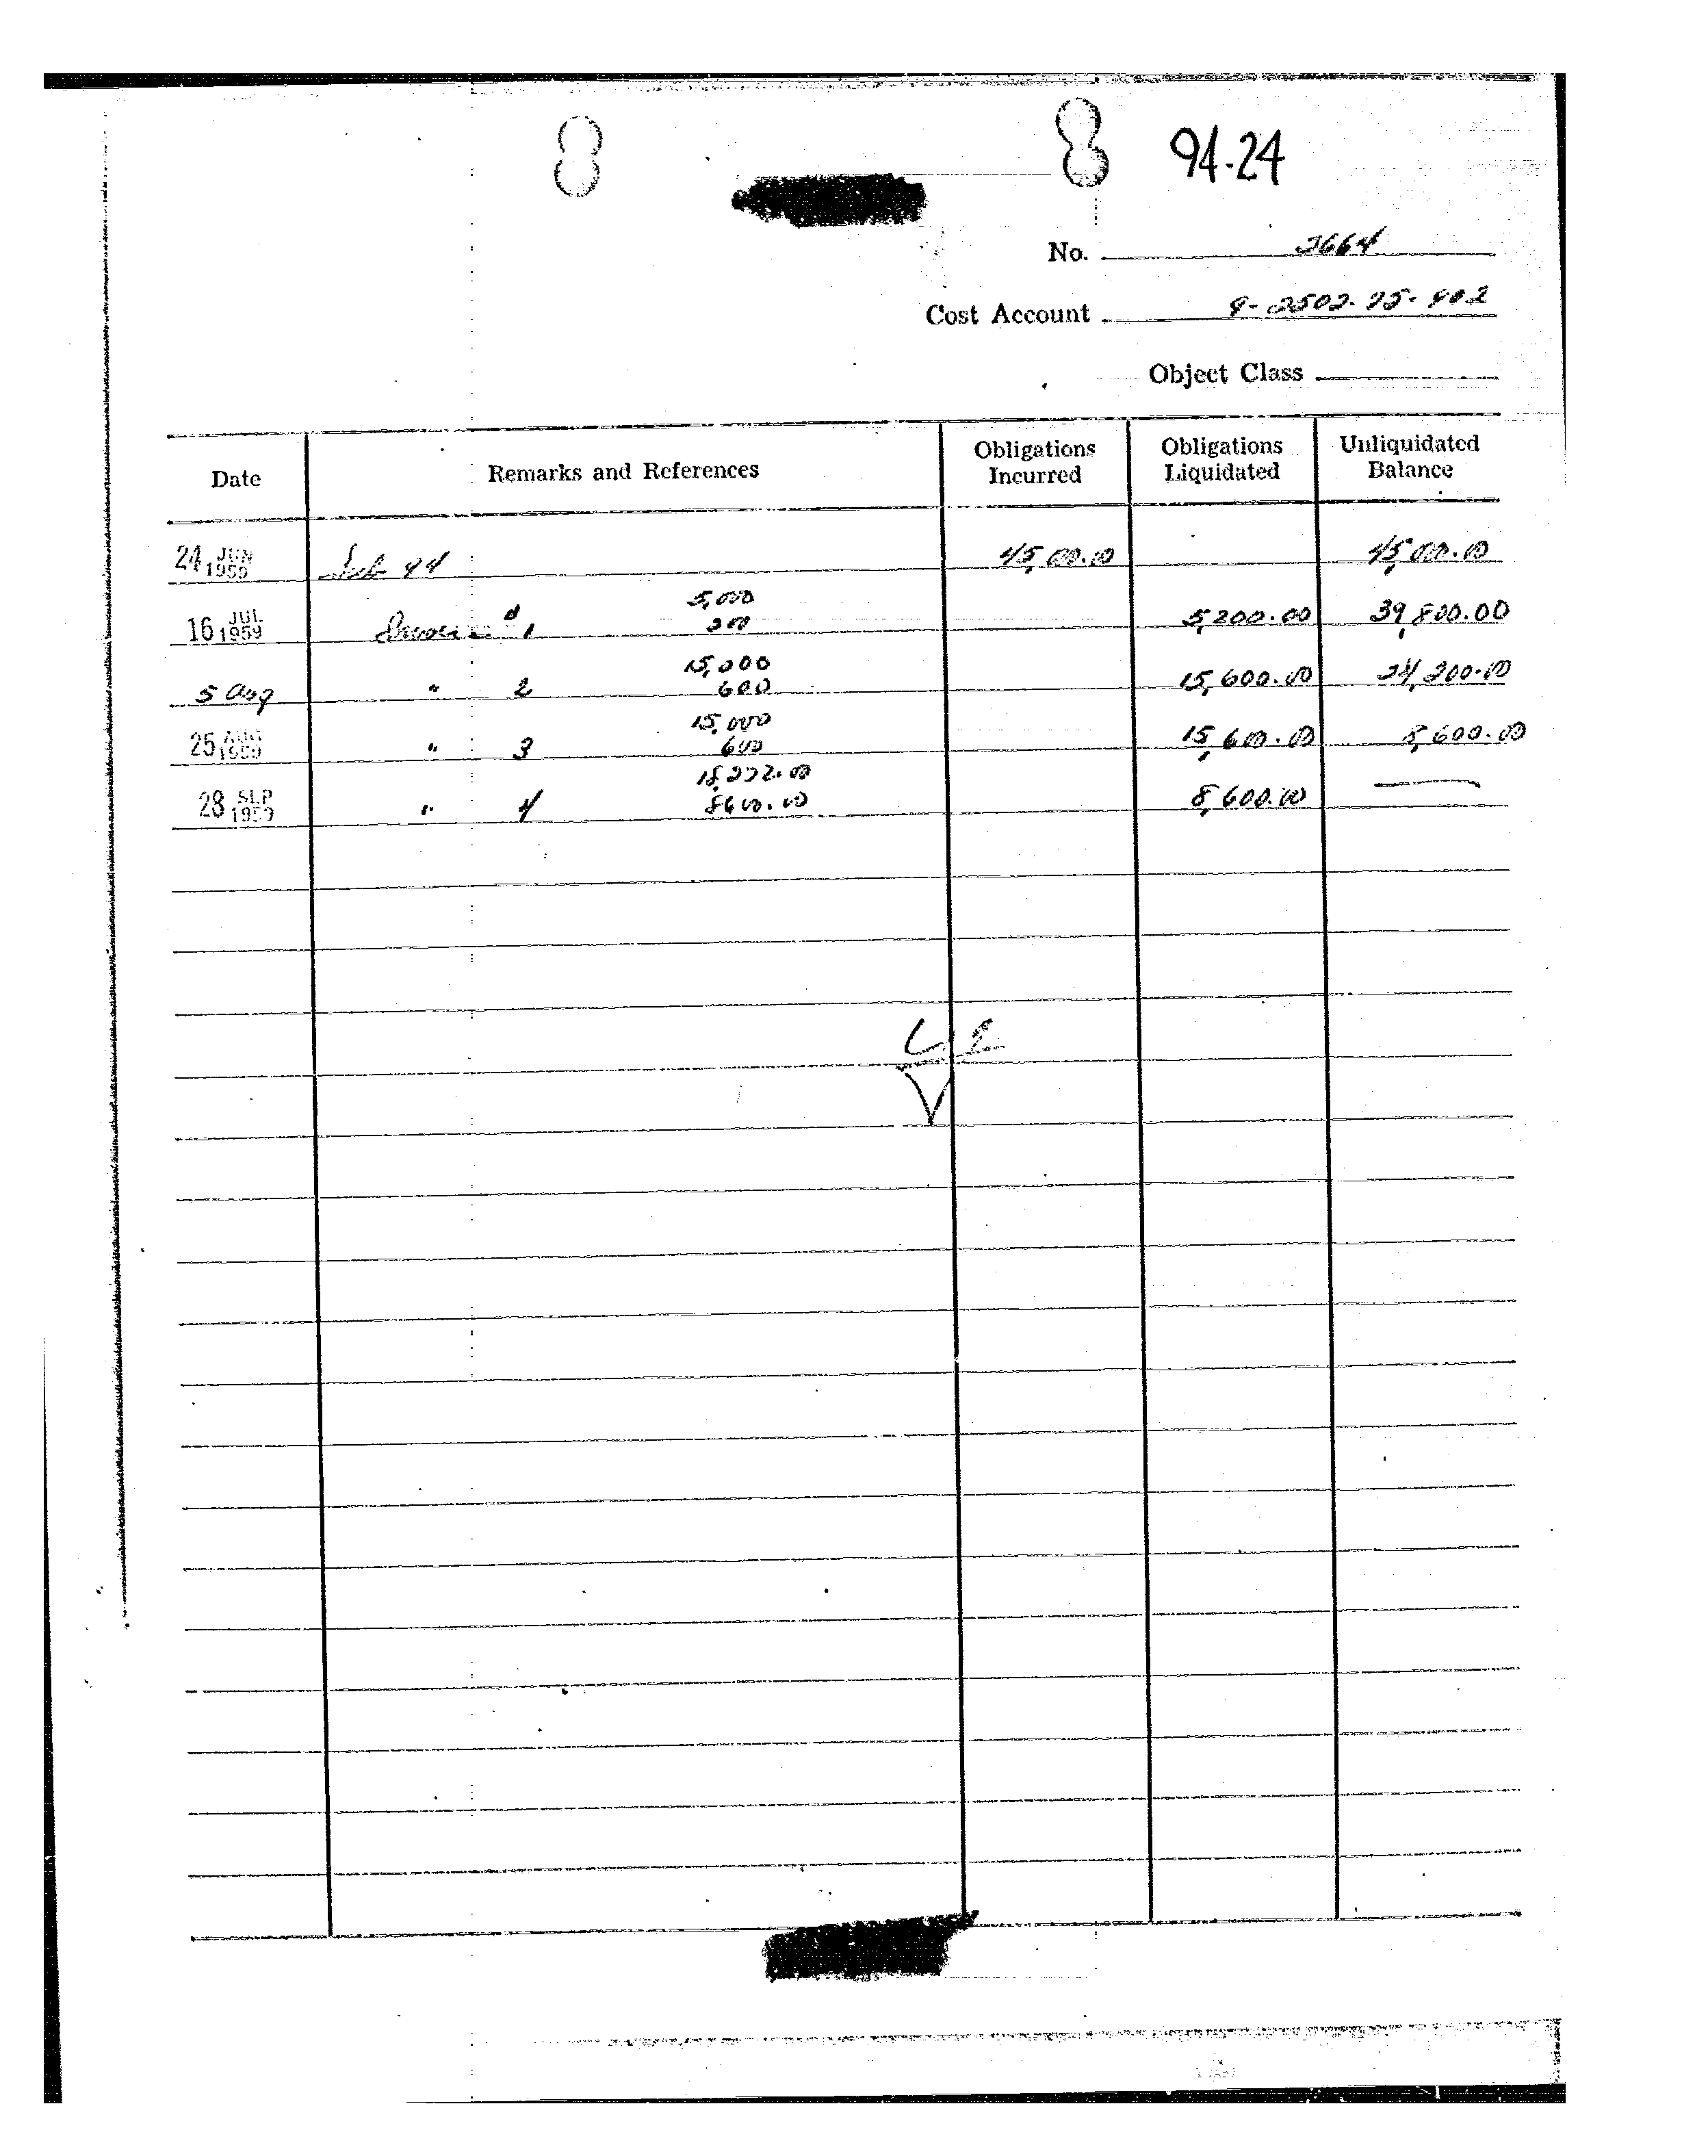 94-24
No. 2664
Cost Account 9-2502-25-902
Object Class
Date Remarks and References Obligations Incurred Obligations Liquidated Unliquidated Balance
24 JUN 1959 Sub 94 45,000.00 45,000.00
5,000
16 JUL 1959 Invoice # 1 200 5,200.00 39,800.00
15,000
5 Aug " 2 600 15,600.00 24,200.00
15,000
25 AUG 1959 " 3 600 15,600.00 8,600.00
8600.00
28 SEP 1959 " 4 8,600.00 —